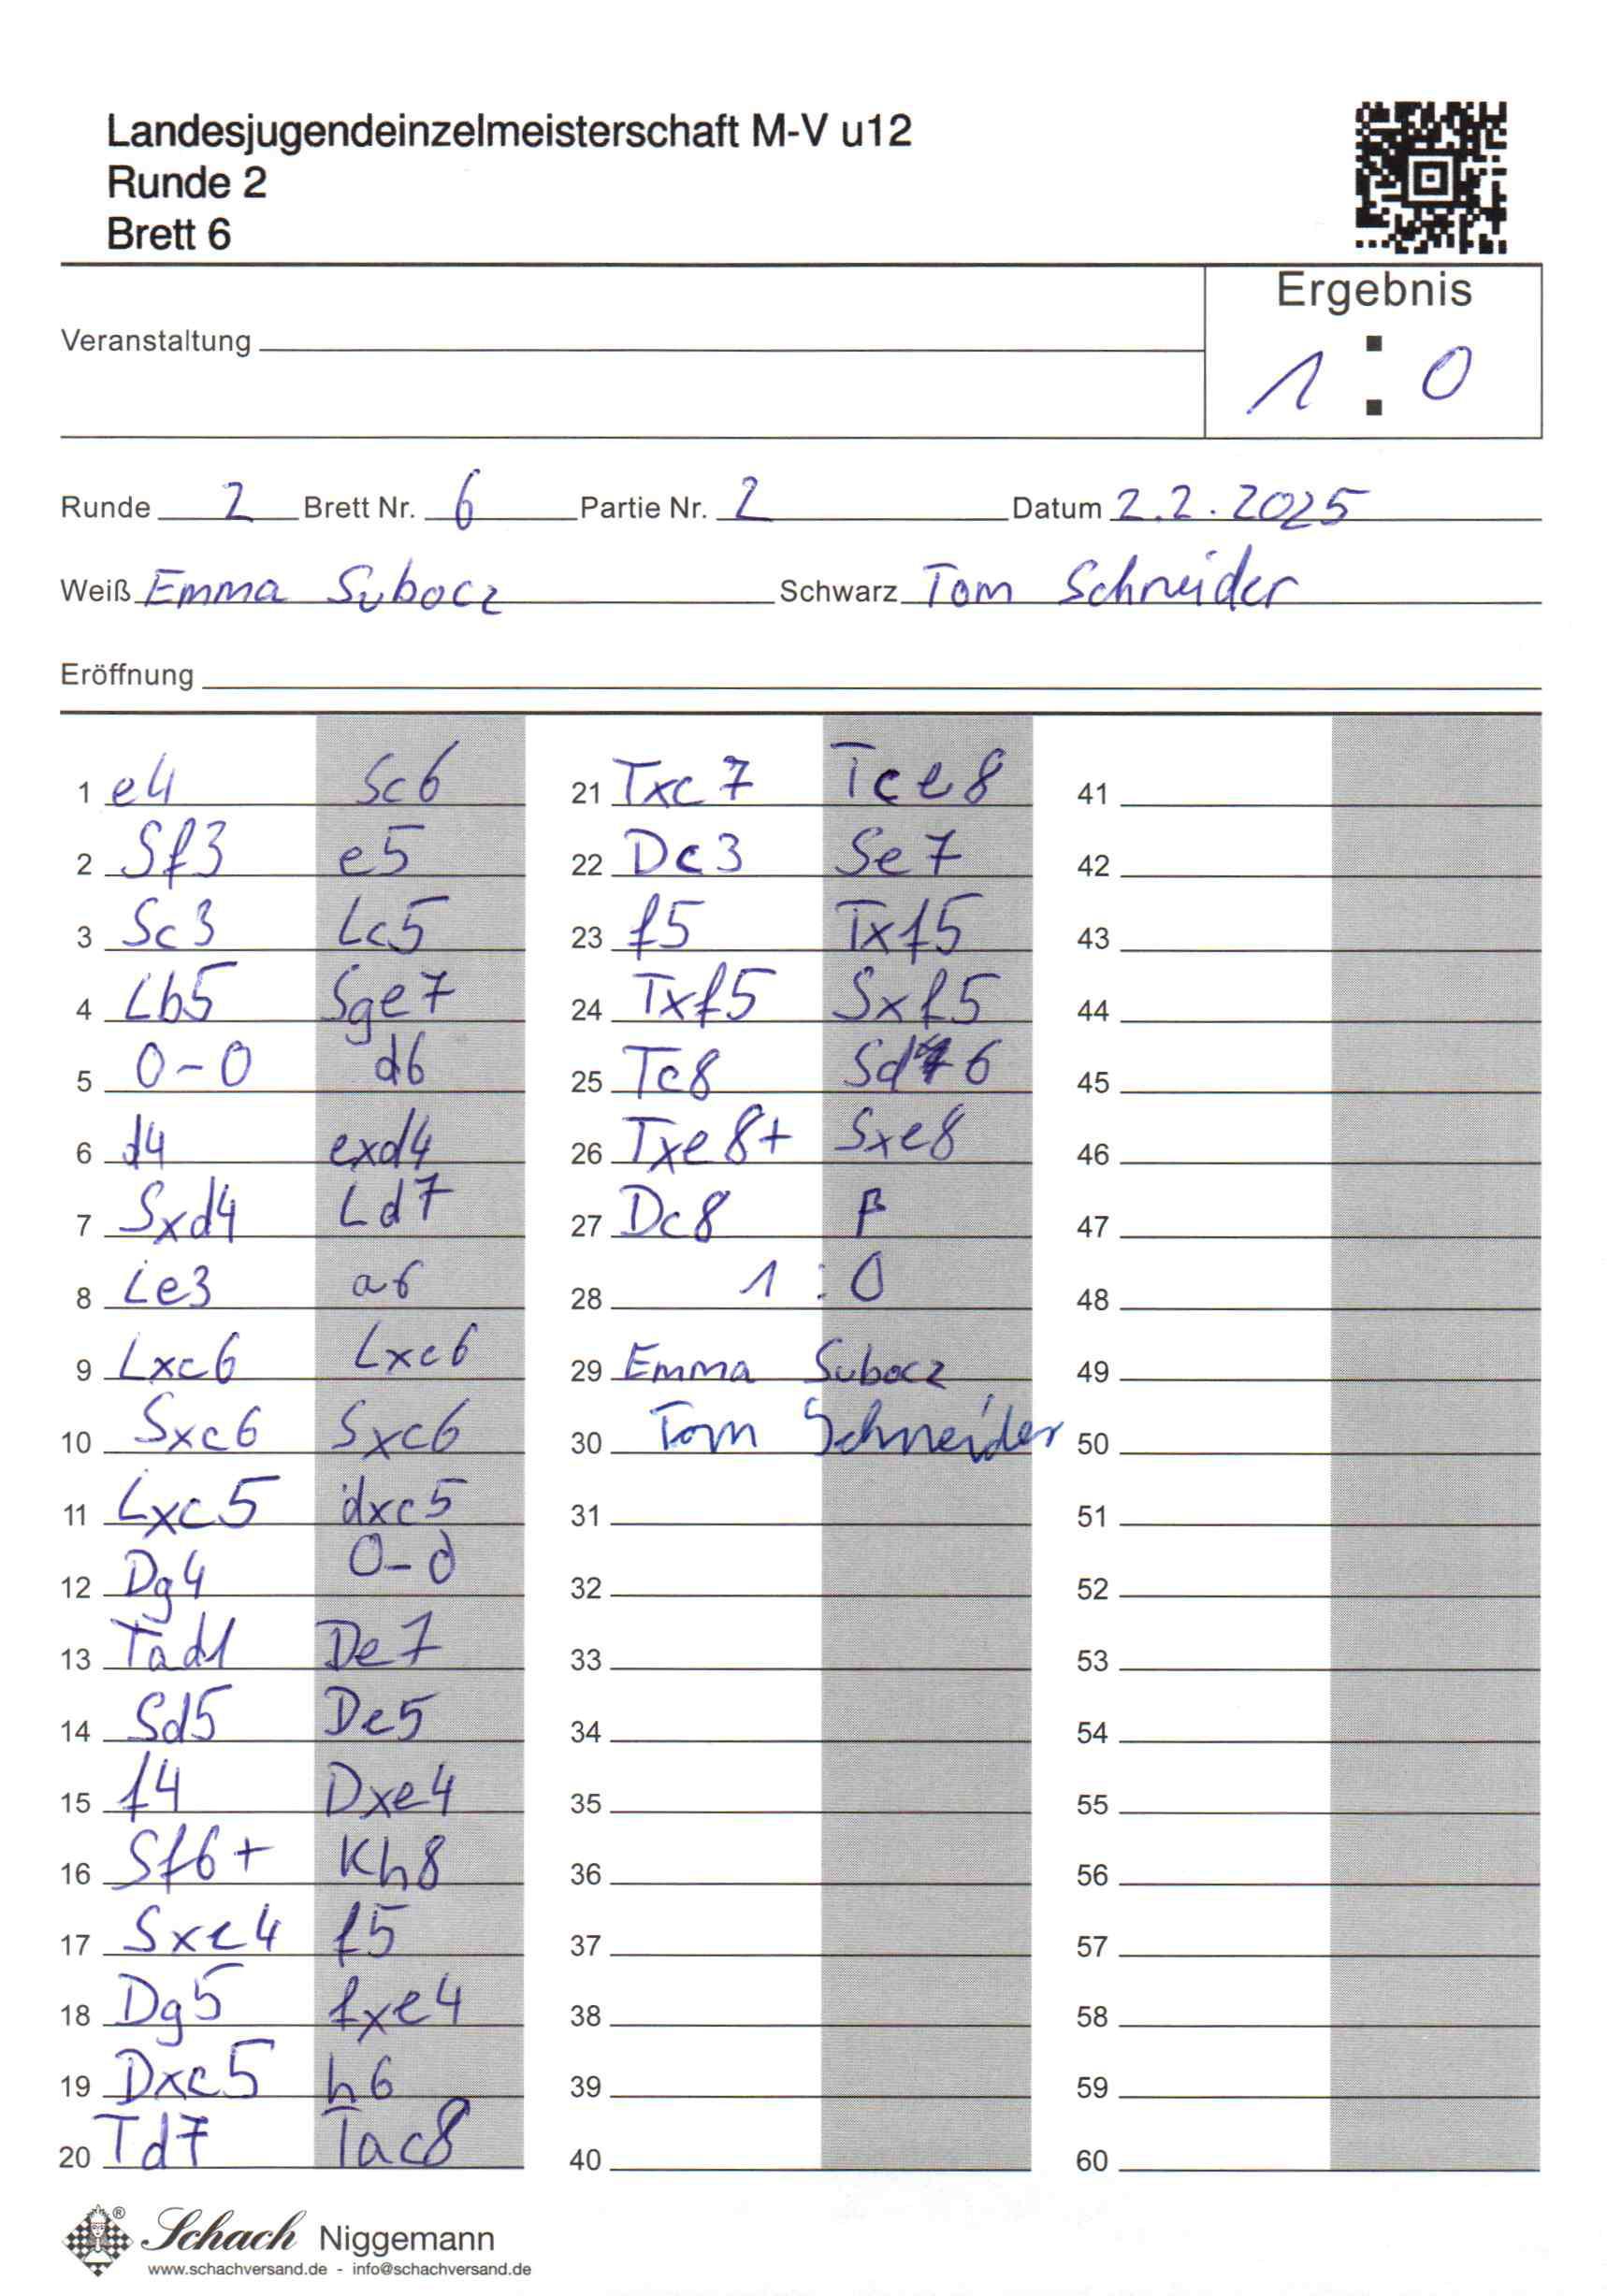 Landesjugendeinzelmeisterschaft M-V u12
Runde 2
Brett 6
Ergebnis
1 : 0
Veranstaltung
Runde 2 Brett Nr. 6 Partie Nr. 2 Datum 2.2.2025
Weiß Emma Subocz Schwarz Tom Schneider
Eröffnung
1 e4 Sc6
2 Sf3 e5
3 Sc3 Lc5
4 Lb5 Sge7
5 0-0 d6
6 d4 exd4
7 Sxd4 Ld7
8 Le3 a6
9 Lxc6 Lxc6
10 Sxc6 Sxc6
11 Lxc5 dxc5
12 Dg4 0-0
13 Tad1 De7
14 Sd5 De5
15 f4 Dxe4
16 Sf6+ Kh8
17 Sxe4 f5
18 Dg5 fxe4
19 Dxc5 h6
20 Td7 Tac8
21 Txc7 Tce8
22 Dc3 Se7
23 f5 Txf5
24 Txf5 Sxf5
25 Tc8 Sd6
26 Txe8+ Sxe8
27 Dc8
28 1 : 0
29 Emma Subocz
30 Tom Schneider
31
32
33
34
35
36
37
38
39
40
41
42
43
44
45
46
47
48
49
50
51
52
53
54
55
56
57
58
59
60
® Schach Niggemann
www.schachversand.de - info@schachversand.de